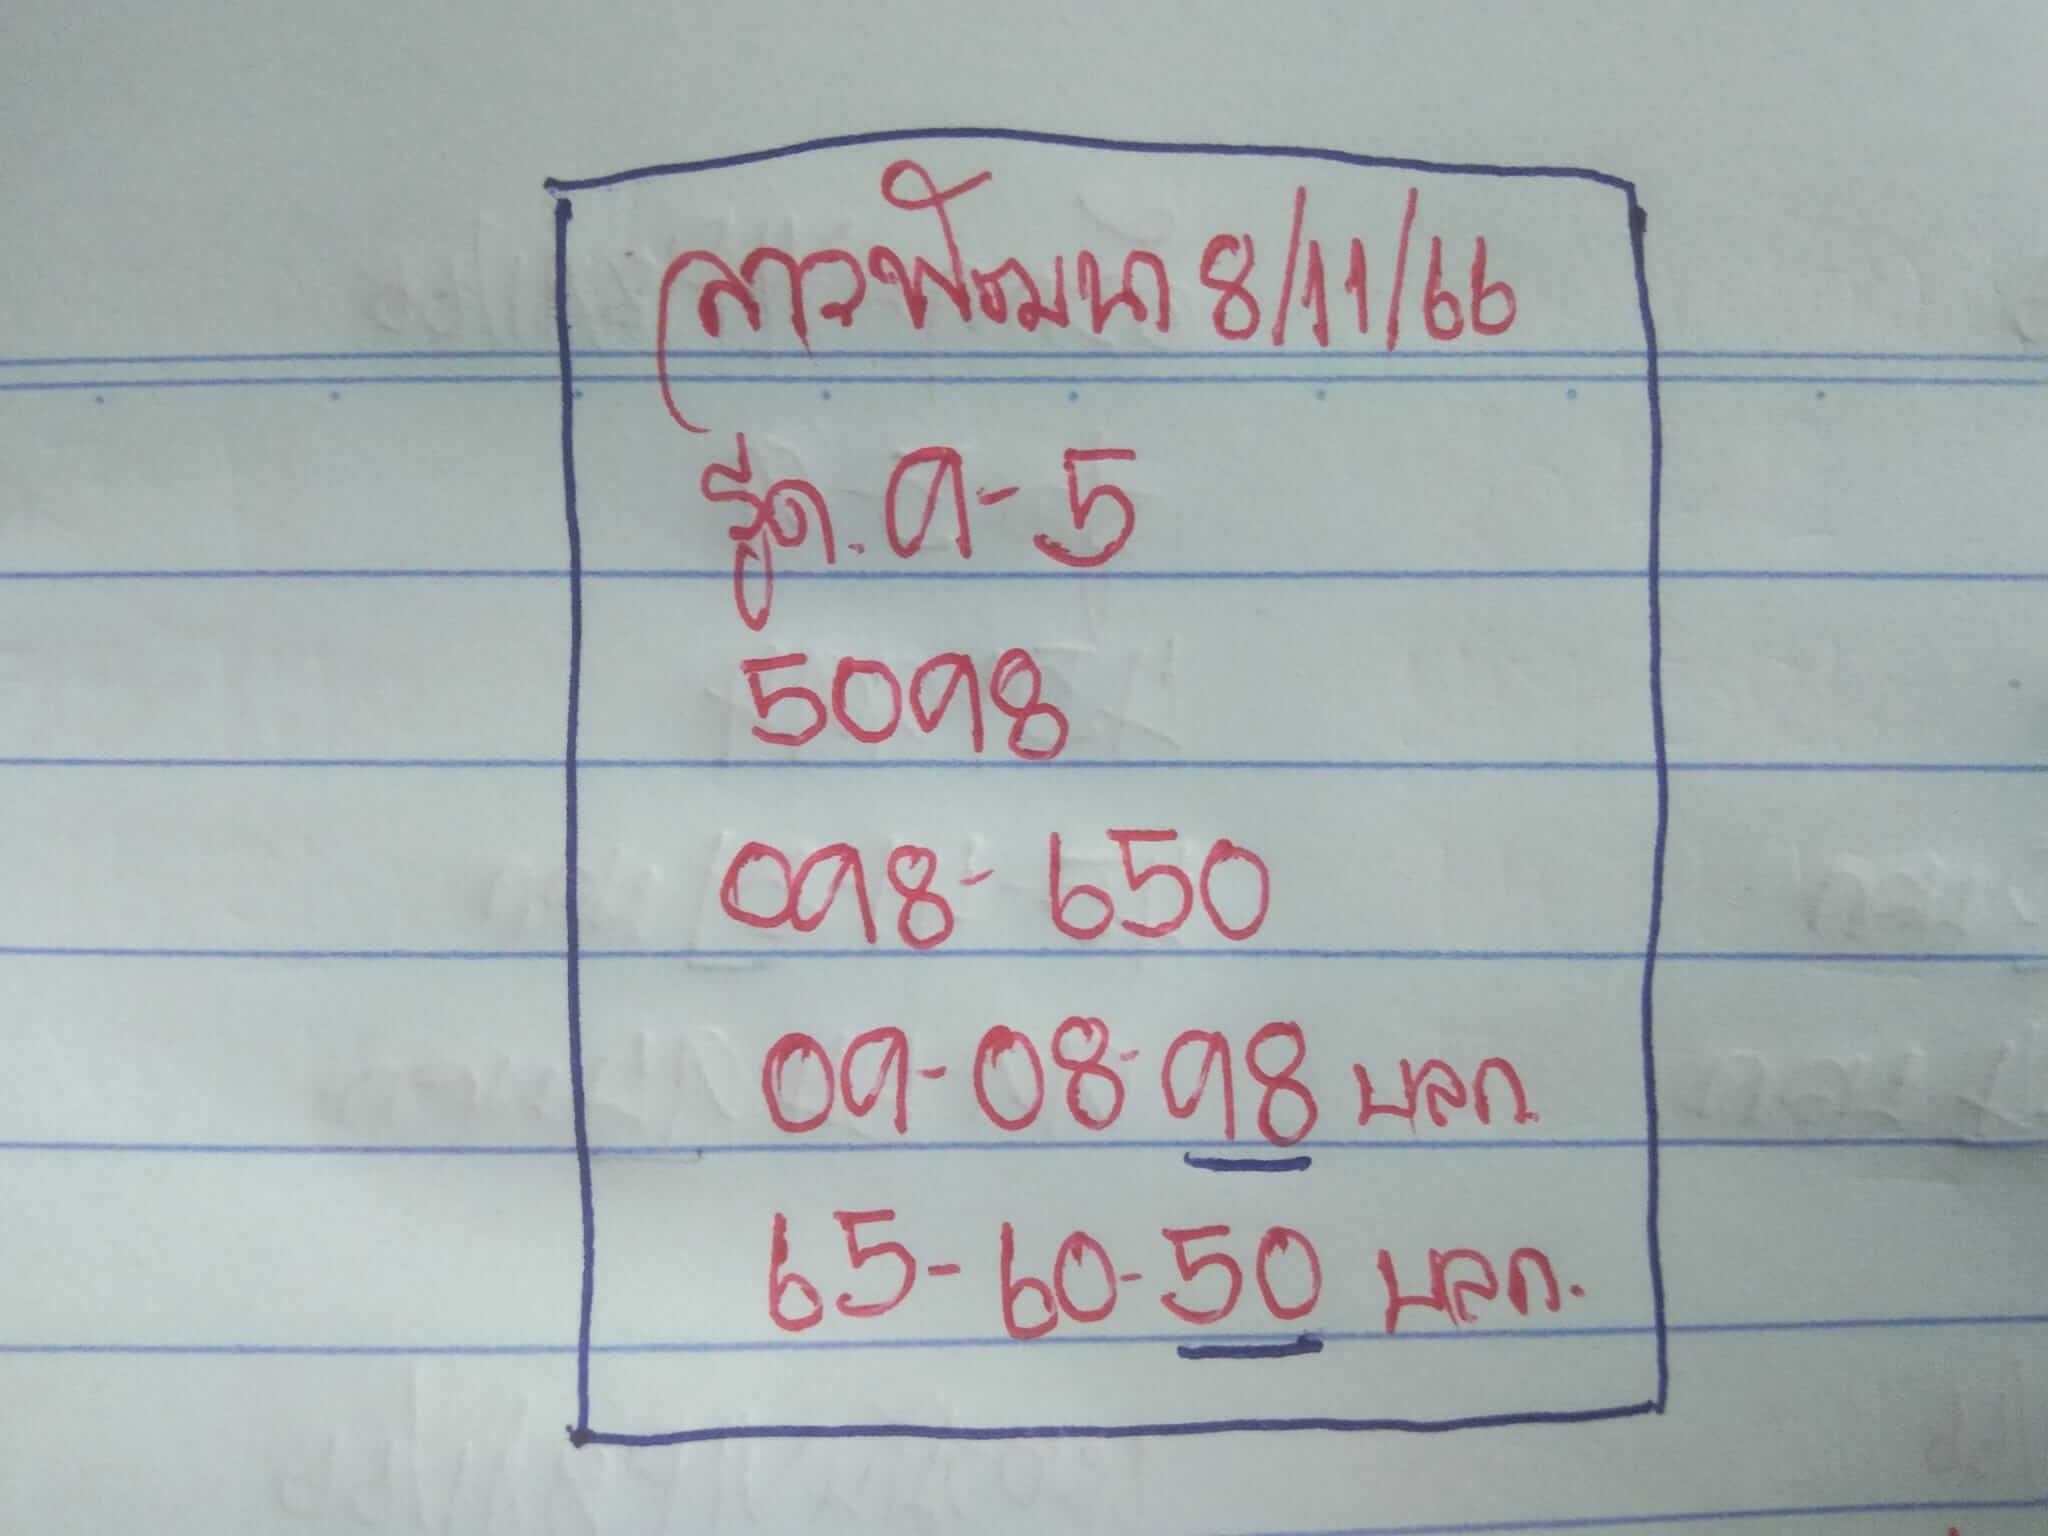 ลาวพัฒนา 8/11/66
รูด. 9-5
5098
098-650
09-08-98 บลก.
65-60-50 บลก.